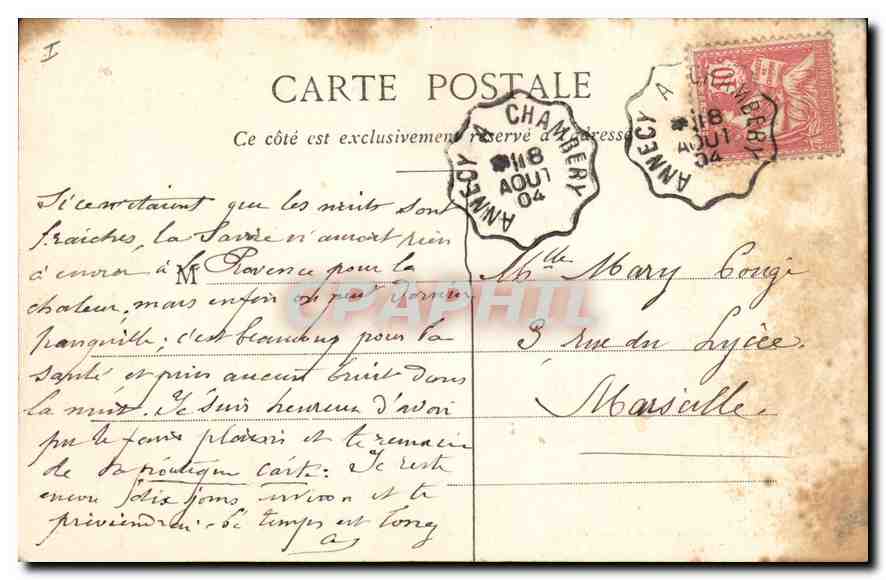 I
CARTE POSTALE
Ce côté est exclusivement réservé à l'adresse
ANNECY A CHAMBERY
18
AOUT
04
ANNECY A CHAMBERY
18
AOUT
04
10
Si ce n'étaient que les nuits sont
fraîches, la Savoie n'auroit rien
à envier à la Provence pour la
chaleur, mais enfin on peut dormir
tranquille; c'est beaucoup pour la
santé et puis aucun bruit dans
la nuit. Je suis heureux d'avoir
pu te faire plaisir et te remercie
de ta carte. Je reste
encore dix jours environ et te
préviendrai. Le temps est long
M
Mlle Mary Cougé
3 rue du Lycée.
Marseille.
CPAPHIL